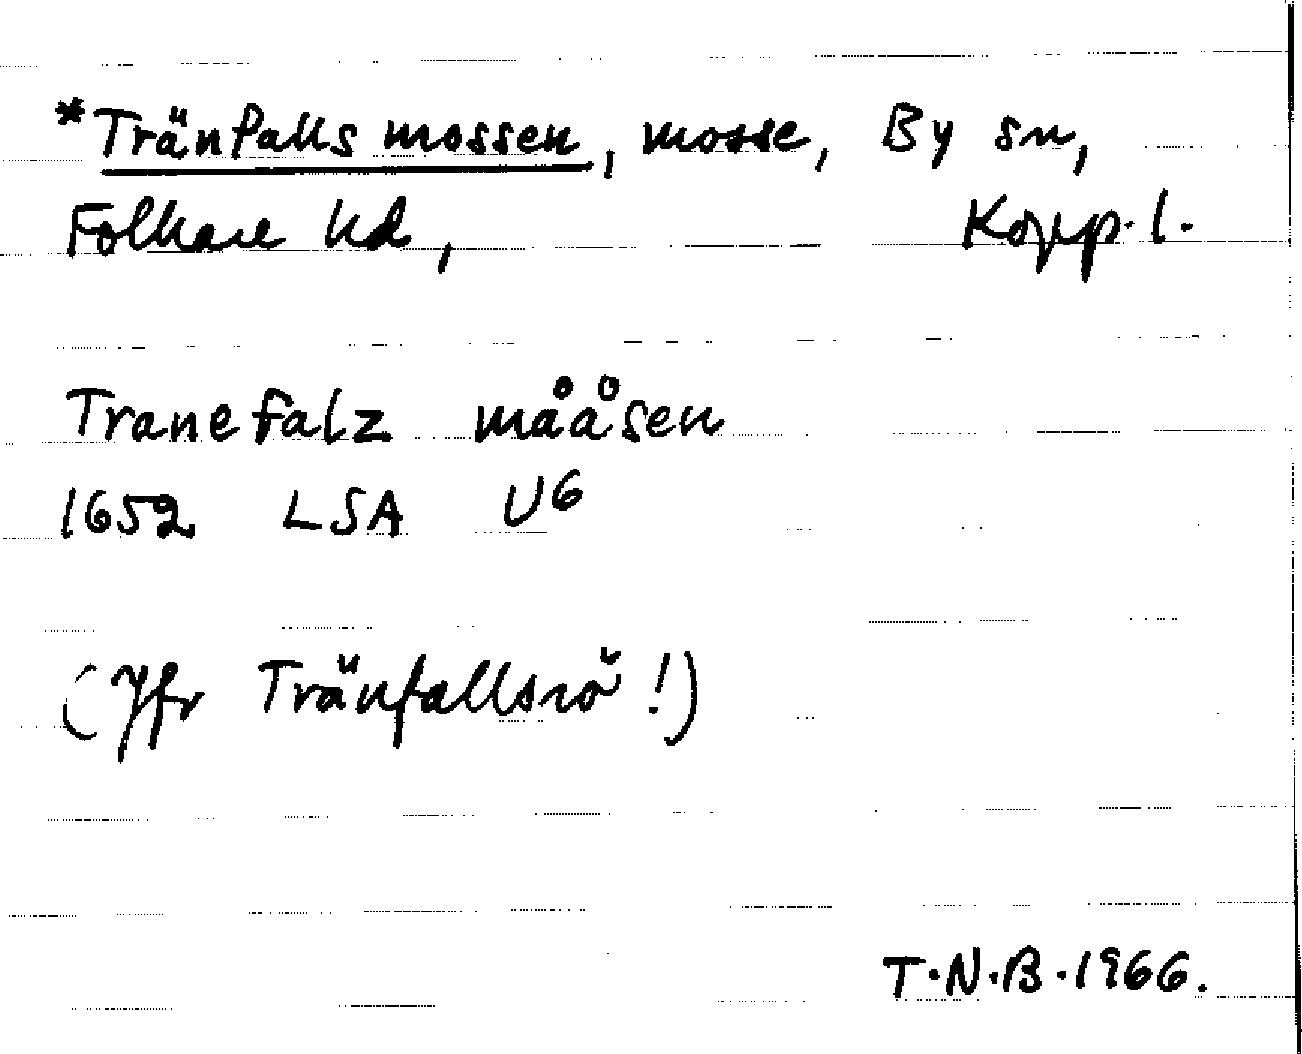 *Tränfalls mossen, mosse, By sn,
Folkare hd, Kopp. l.
Tranefalz mååsen
1652 LSA U6
(Jfr Tränfallsrå !)
T.N.B. 1966.